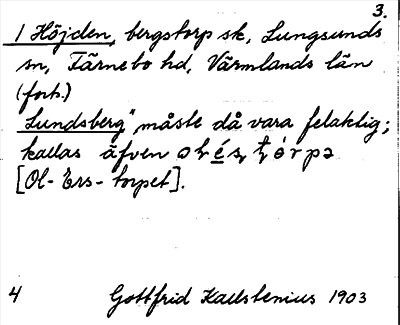 3.
1 Höjden, bergstorp sk, Lungsunds
sn, Färnebo hd, Värmlands län
(forts.)
Lundsberg" måste då vara felaktig;
kallas äfven
[Ol-Ers-torpet].
4 Gottfrid Kallstenius 1903